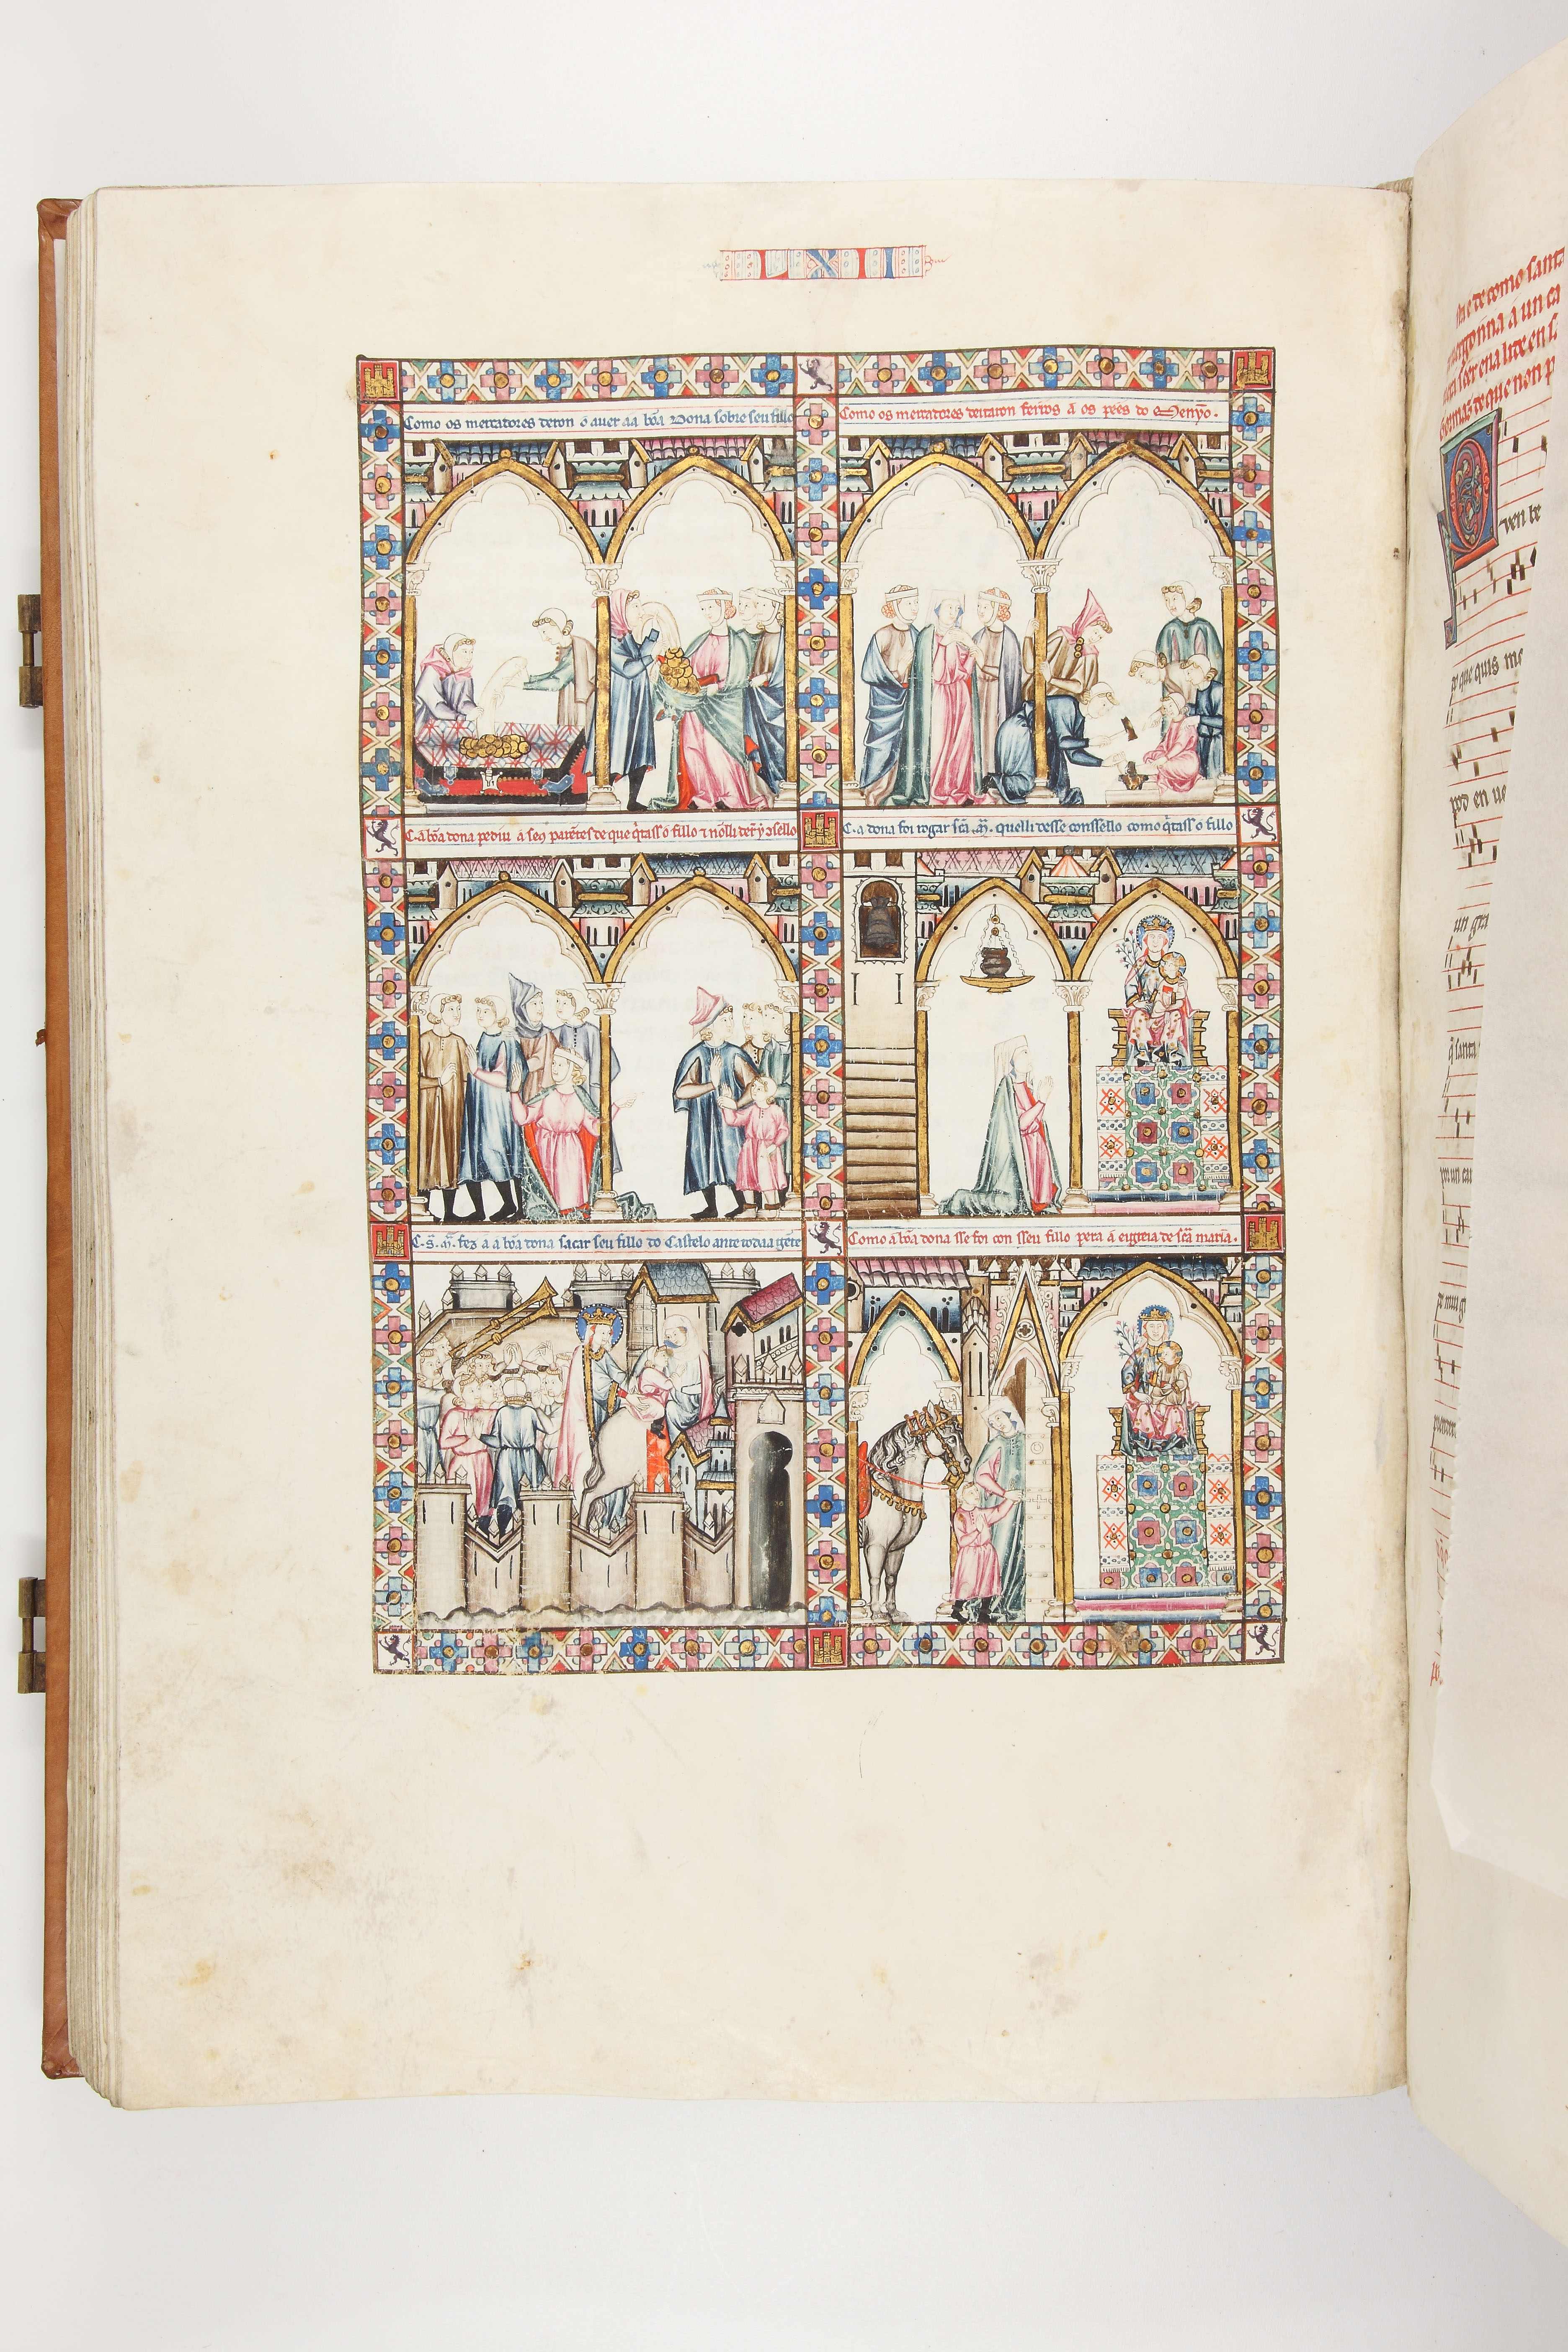 LXII
Como os mercadores deron o auer aa bõa dona sobre seu fillo
Como os mercadores deitaron ferros a os pees do Menỹo.
C. a bõa dona pediu a seus parẽtes de que q̃tass o fillo ⁊ nõlli derõ ꝯsello
C. a dona foi rogar scã. M̃. quelli desse conssello como q̃tass o fillo
C. S. M̃. fez á a bõa dona sacar seu fillo do Castelo ante toda a gẽte
Como a bõa dona sse foi con sseu fillo pera á eigreia de scã maria.
como santa
a un ca
que non p
ven de
que quis
pod en
un gra
santa